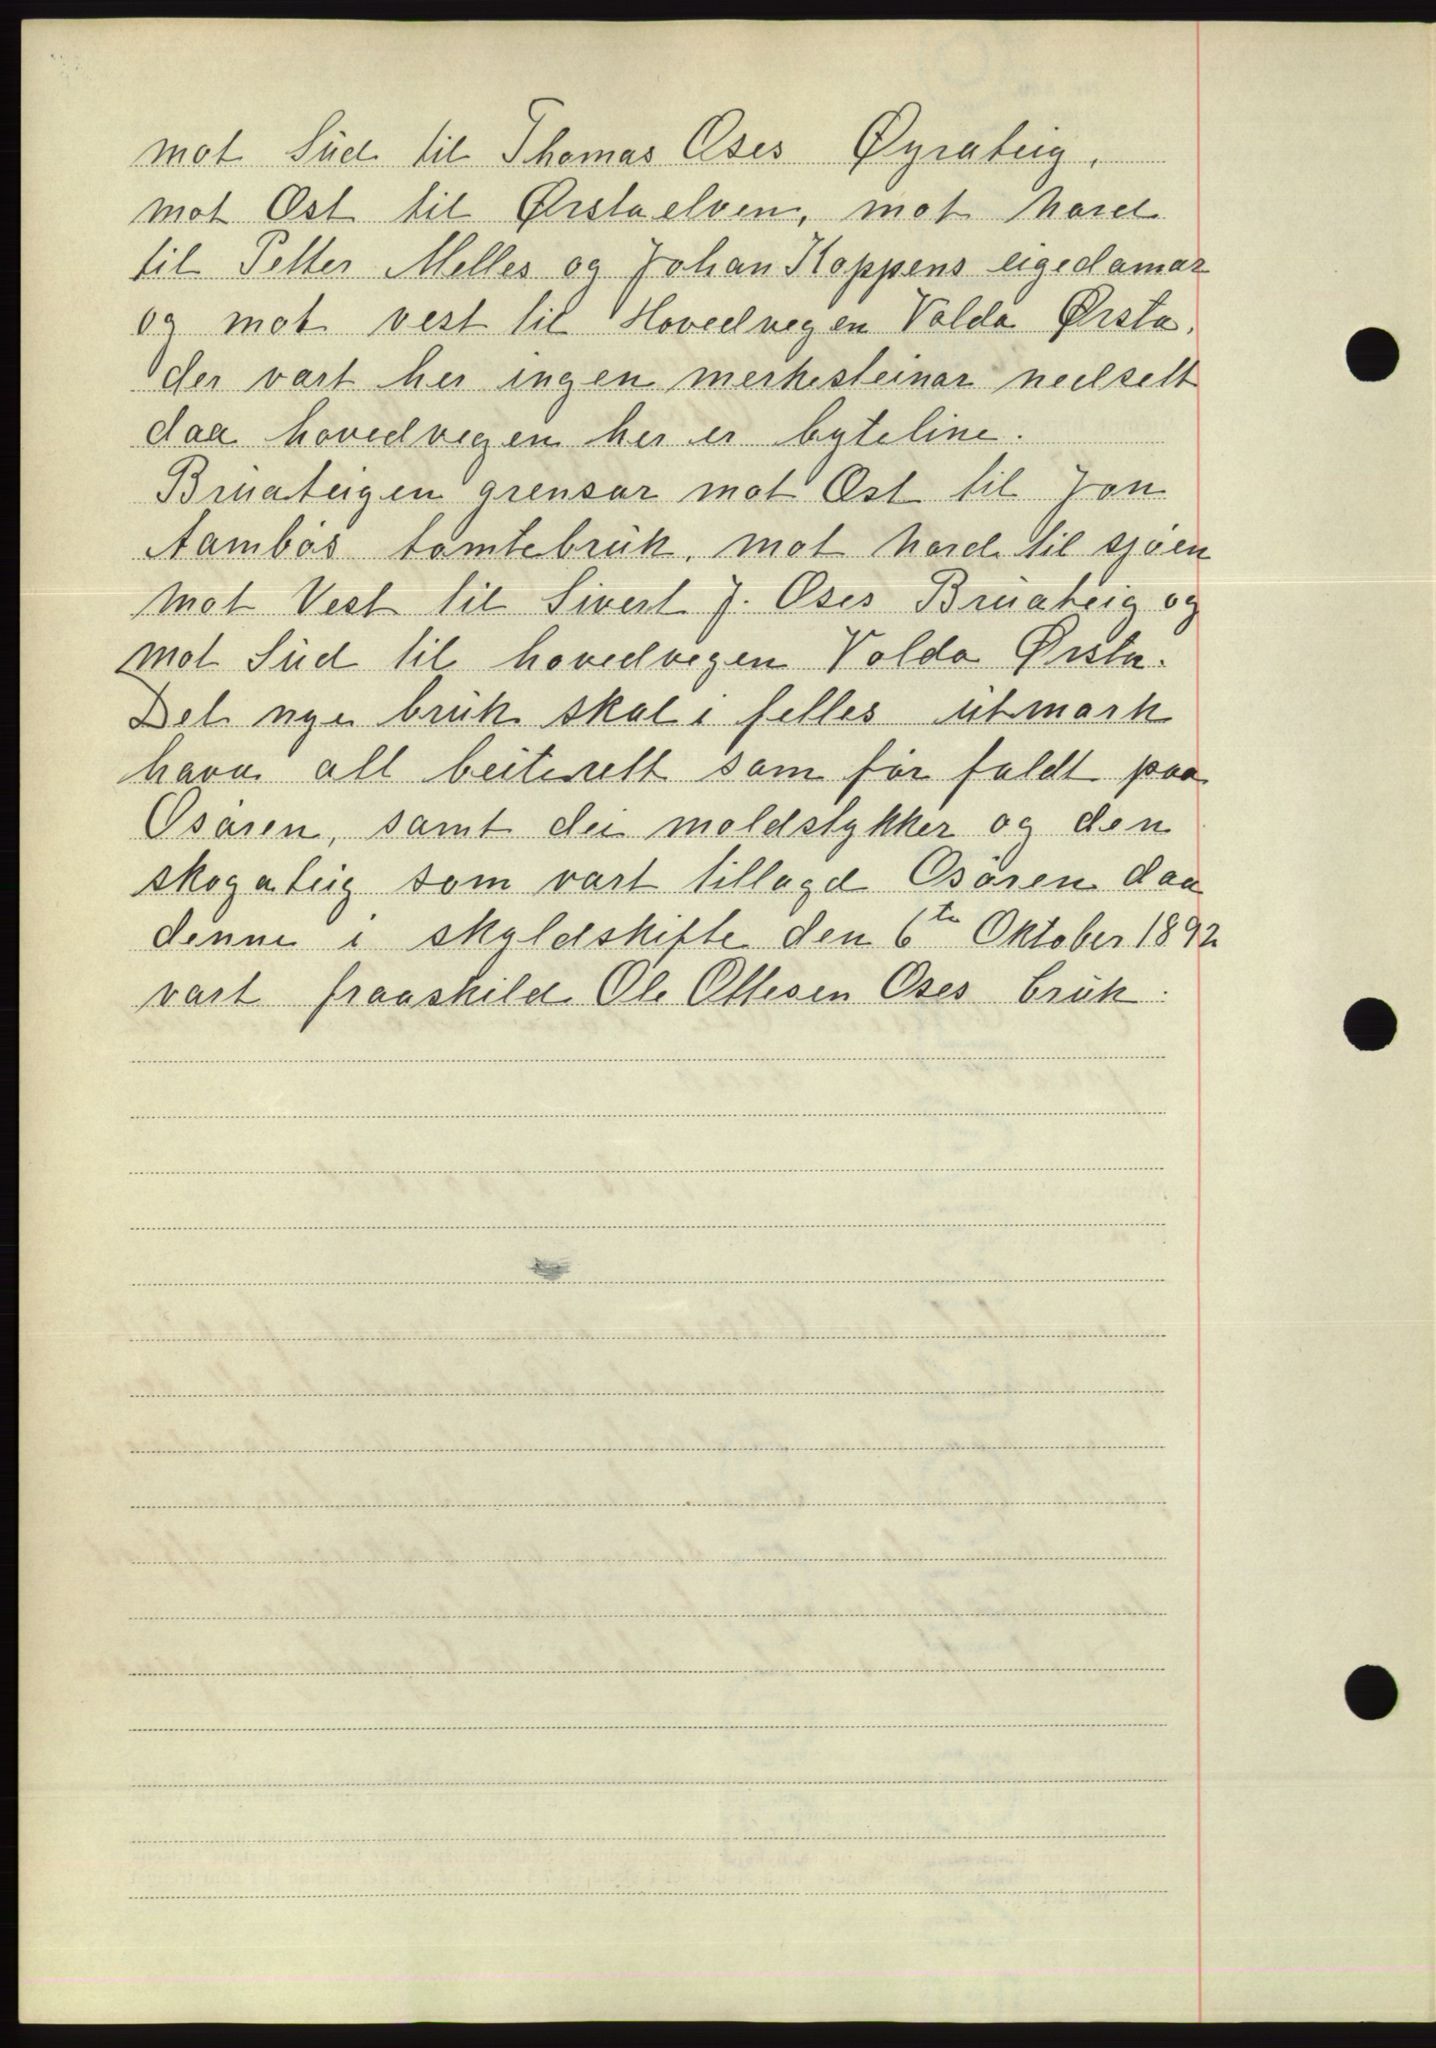 mot Süd til Thomas Oses Øyrateig,
mot Øst til Ørstaelven, mot Nord
til Petter Melles og Johan Koppens eigedomar
og mot vest til Hovedvegen Volda Ørsta.
der vart her ingen merkesteinar nedsett
daa hovedvegen her er byteline.
Brüateigen grensar mot Øst til Jon
Aambös tomtebrük, mot Nord til sjöen
mot Vest til Sivert J. Oses Brüateig og
mot Süd til hovedvegen Volda Ørsta.
Det nye brük skal i felles ütmark
hava all beiterett som för faldt paa
Osören, samt dei moldstykker og den
skogateig som vart tillagd Osören daa
denne i skyldskifte den 6te Oktober 1892
vart fraaskild Ole Ottesen Oses brük.